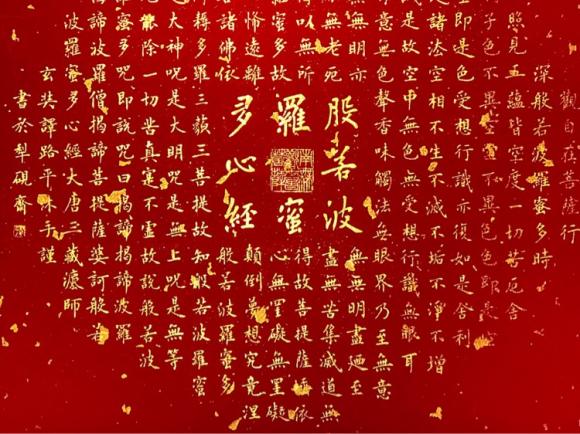 觀自在菩薩行
深般若波羅蜜多時
照見五蘊皆空度一切苦厄舍
子色不異空空不異色色即是空
空即是色受想行識亦復如是舍利
是諸法空相不生不滅不垢不淨不增
是故空中無色無受想行識無眼耳
意無色聲香味觸法無眼界乃至無意
無無明亦
無無明盡迺至
無老死
盡無苦集滅道無
得以無所
得故菩提薩埵依
蜜多故
心無罣礙無罣礙
遠離
顛倒夢想究竟涅
諸佛依
般若波羅蜜多
般若波
羅蜜
多心經
耨多羅三藐三菩提故知般若波羅蜜
大神咒是大明咒是無上咒是無等
能除一切苦真寔不虛故說般若波
蜜多咒即說咒曰揭諦揭諦波羅
揭諦波羅僧揭諦菩提薩婆訶般若
波羅蜜多心經大唐三藏法師
玄奘譯路平沐手謹
書於犁硯齋